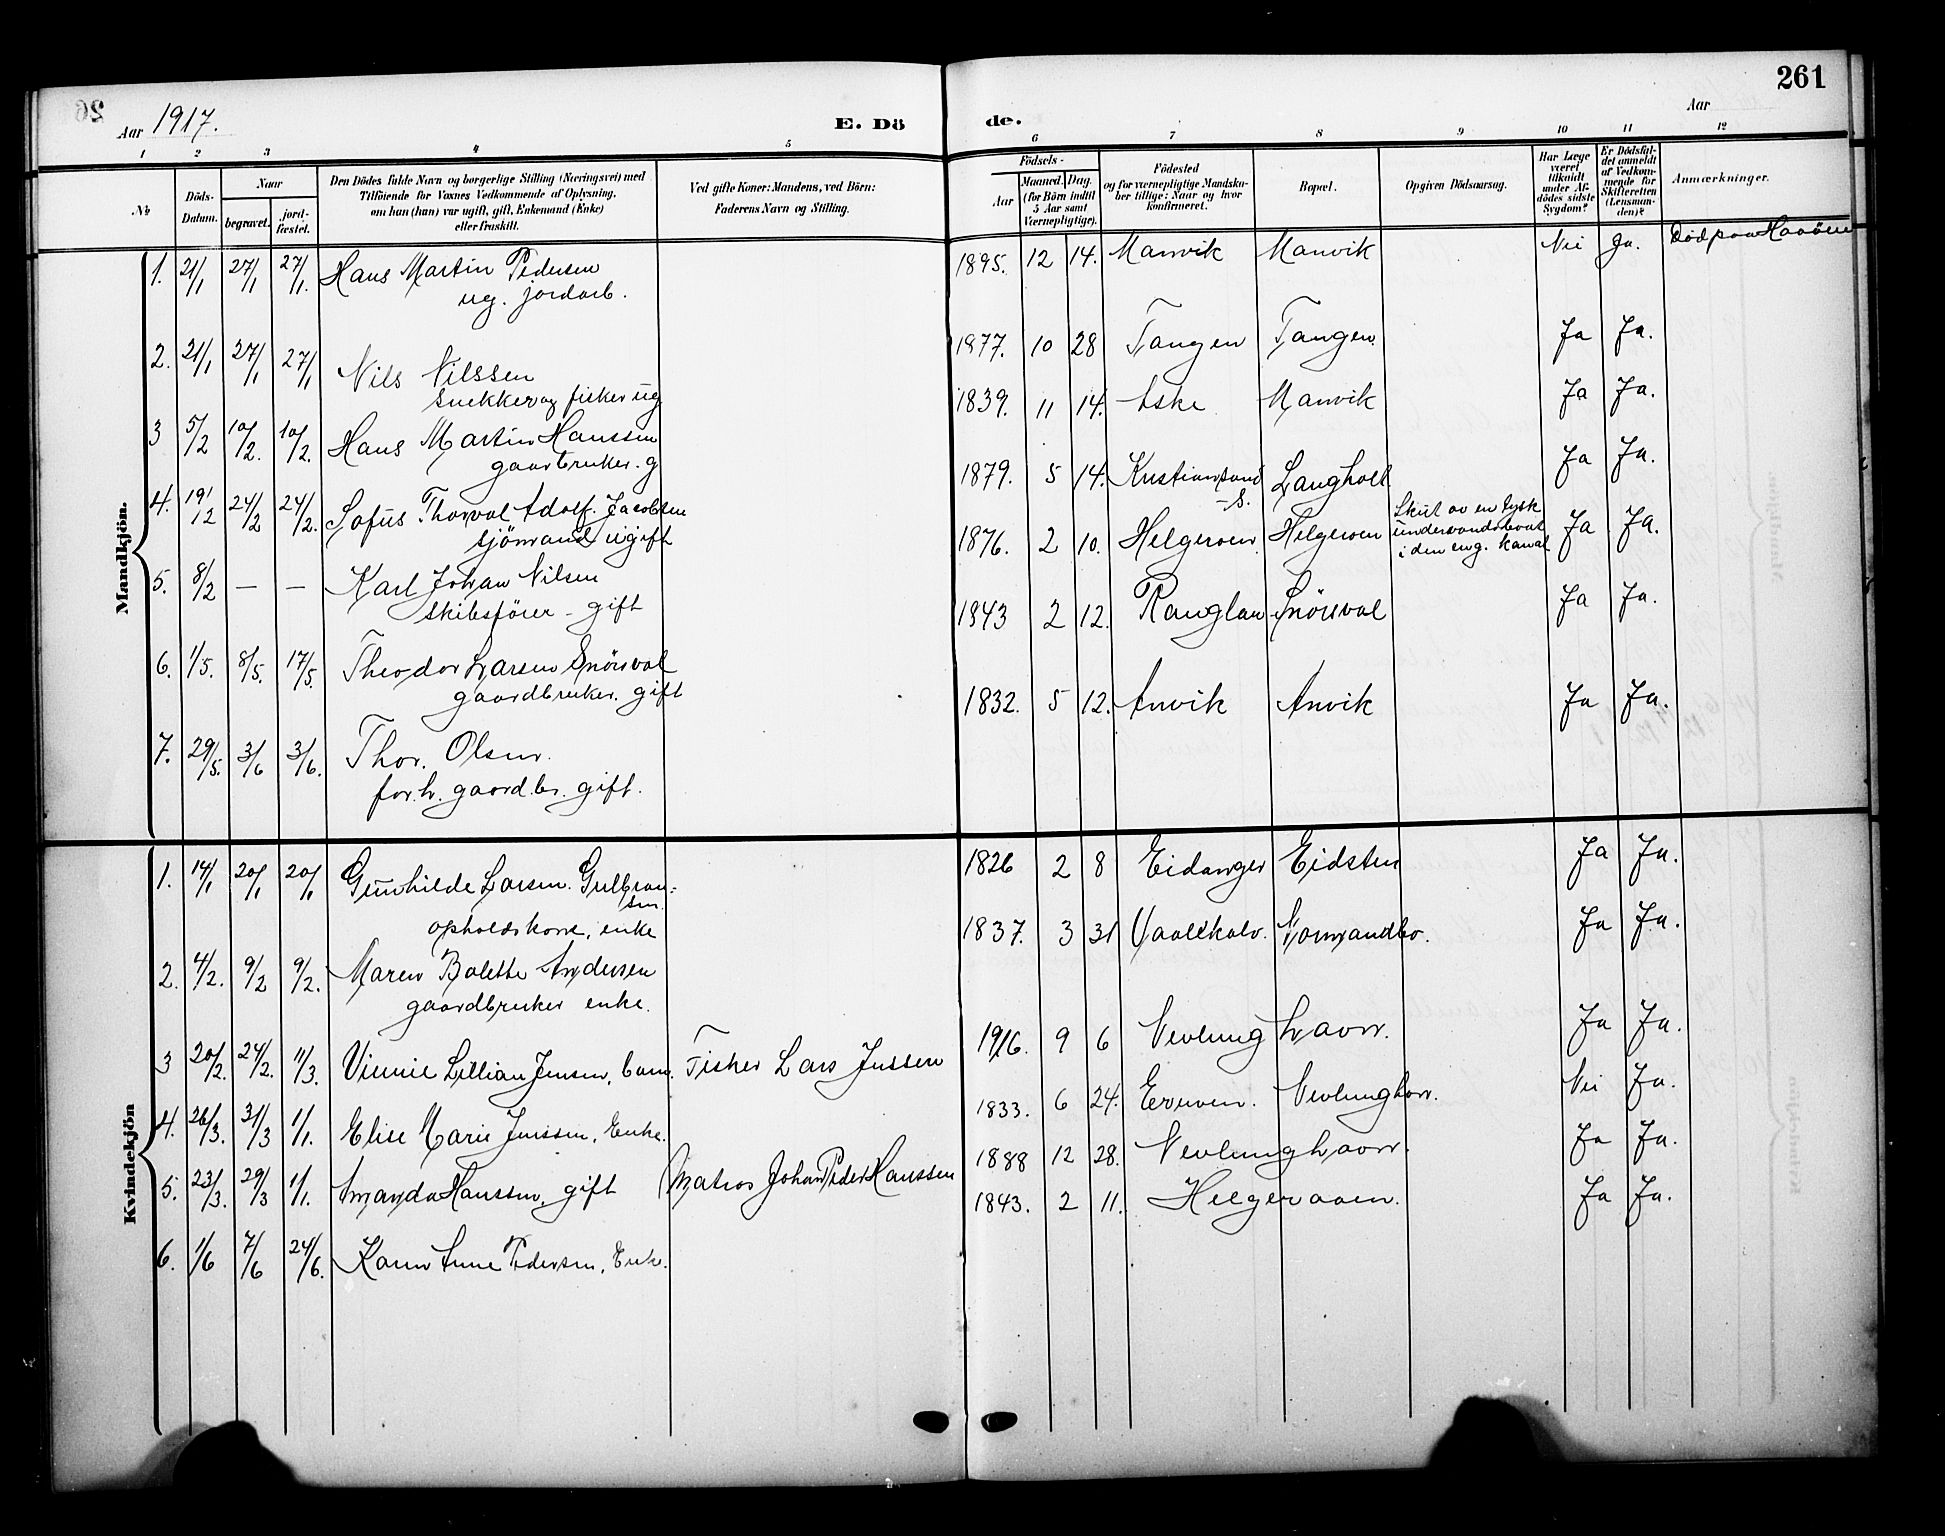 261
Aar 1917.
E. Dö
de.
Aar
1 2 3 4 5 6 7 8 9 10 11 12
№
Döds-Datum.
Naar
begravet.
jord-fæstet.
Den Dödes fulde Navn og borgerlige Stilling (Næringsvei) med
Tilföiende for Voxnes Vedkommende af Oplysning,
om han (hun) var ugift, gift, Enkemand (Enke)
eller fraskilt.
Ved gifte Koner: Mandens, ved Börn:
Faderens Navn og Stilling.
Födsels-
Aar
Maaned. Dag.
(for Börn indtil
5 Aar samt
Værnepligtige).
Födested
og for værnepligtige Mandska-
ber tillige: Naar og hvor
konfirmeret.
Bopæl.
Opgiven Dödsaarsag.
Har Læge
været
tilkaldt
under Af-
dödes sidste
Sygdom?
Er Dödsfal-
det anmeldt
af Vedkom-
mende for
Skifteretten
(Lensman-
den)?
Anmærkninger.
Mandkjön.
1. 21/1 27/1 27/1. Hans Martin Pedersen
ug. jordarb.
1895. 12 14. Manvik Manvik Nei Ja. Död paa Haaöen
2. 21/1 27/1 27/1 Nils Nilssen
snekker og fisker ug
1877. 10 28 Tangen Tangen. Ja Ja.
3 5/2 10/2. 10/2. Hans Martin Hanssen
gaarbruker. g
1839. 11 14. Aske Manvik Ja Ja.
4. 19/12 24/2 24/2. Sofus Thorval Adolf. Jacobsen
sjömand ugift
1879. 5 14. Kristiansand
-S.
Langholt Ja Ja.
5. 8/2 — — Karl Johan Nilsen
skibsförer - gift
1876. 2 10. Helgeroen Helgeroen
Skut av en tysk
undervandsbaat
i den eng. kanal
Ja Ja.
6. 1/5. 8/5. 17/5. Theodor Larsen Snörsval
gaardbruker. gift
1843 2 12. Ranglan Snörsval Ja Ja.
7. 29/5. 3/6 3/6. Thor. Olsen.
forh. gaardbr. gift.
1832. 5 12. Anvik Anvik Ja Ja.
Kvindekjön
1. 14/1 20/1 20/1 Gunhilde Larsen. Gulbran=
sen.
opholdskone, enke
1826 2 8 Eidanger Eidsten Ja Ja.
2. 4/2. 9/2 9/2. Maren Bolette Andersen
gaardbruker enke.
1837. 3 31 Vaalekalv. Nordmandbo. Ja Ja.
3 20/2. 24/2. 11/3. Vinnie Lillian Jensen, barn. Fisker Lars Jenssen
1916. 9 6 Nevlunghavn. Ja Ja.
4. 26/3. 31/3 1/1. Elise Marie Jenssen, Enke.
1833. 6 24. Nevlunghavn. Nei Ja.
5. 23/3. 29/3 1/1. Amanda Hanssen, gift Matros Johan Peder Hanssen
1888 12 28. Nevlunghavn. Ja Ja.
6. 1/6 7/6 24/6. Karen Anne Pedersen, Enke.
1843. 2 11. Helgeroaen. Ja Ja.